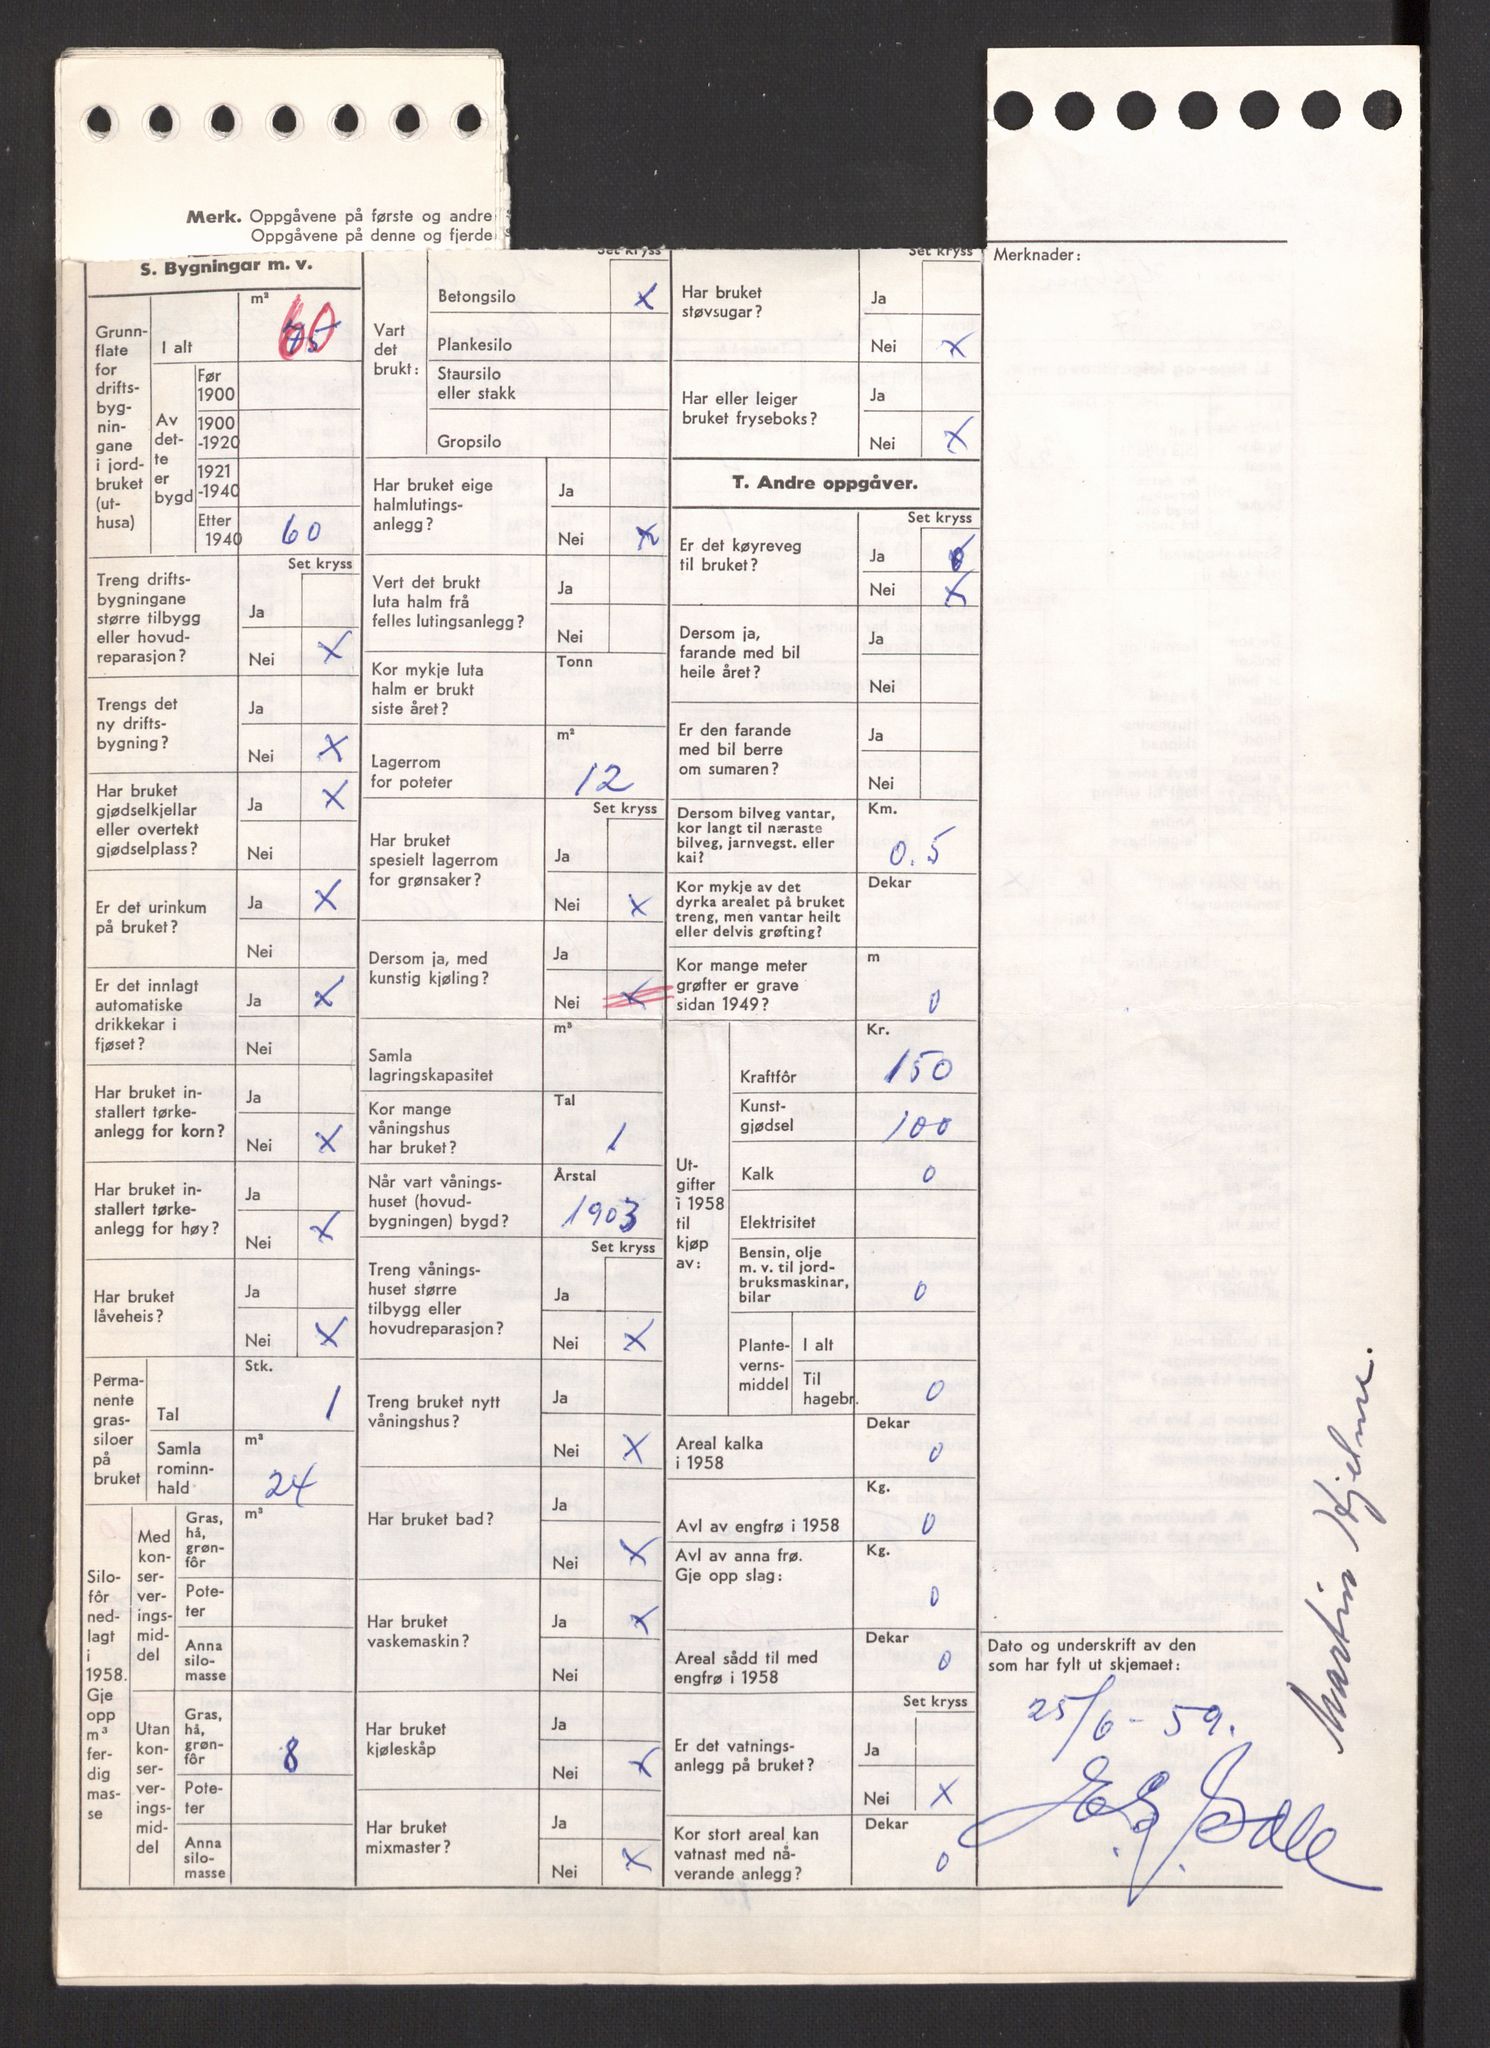 Merk. Oppgåvene på første og andre
Oppgåvene på denne og fjerde
S. Bygningar m. v.
Grunn-
flate
for
drifts-
byg-
nin-
gane
i jord-
bruket
(ut-
husa)
I alt
m²
75
60
Av
det-
te
er
bygd
Før
1900
1900
-1920
1921
-1940
Etter
1940
60
Set kryss
Treng drifts-
bygningane
større tilbygg
eller hovud-
reparasjon?
Ja
Nei X
Trengs det
ny drifts-
bygning?
Ja
Nei X
Har bruket
gjødselkjellar
eller overtekt
gjødselplass?
Ja X
Nei
Er det urinkum
på bruket?
Ja X
Nei
Er det innlagt
automatiske
drikkekar i
fjøset?
Ja X
Nei
Har bruket in-
stallert tørke-
anlegg for korn?
Ja
Nei X
Har bruket in-
stallert tørke-
anlegg for høy?
Ja
Nei X
Har bruket
låveheis?
Ja
Nei X
Perma-
nente
gras-
siloer
på
bruket
Stk.
Tal 1
Samla
rominn-
hald
m³
24
Silo-
fôr
ned-
lagt
i
1958.
Gje
opp
m³
fer-
dig
mas-
se
Med
kon-
ser-
ver-
ings-
mid-
del
Gras,
hå,
grøn-
fôr
m³
Pote-
ter
Anna
silo-
masse
Utan
kon-
ser-
ver-
ings-
mid-
del
Gras,
hå,
grøn-
fôr
8
Pote-
ter
Anna
silo-
masse
Set kryss
Vart
det
brukt:
Betongsilo X
Plankesilo
Staursilo
eller stakk
Gropsilo
Har bruket eige
halmlutings-
anlegg?
Ja
Nei X
Vert det brukt
luta halm frå
felles lutingsanlegg?
Ja
Nei
Kor mykje luta
halm er brukt
siste året?
Tonn
Lagerrom
for poteter
m²
12
Set kryss
Har bruket
spesielt lagerrom
for grønsaker?
Ja
Nei X
Dersom ja, med
kunstig kjøling?
Ja
Nei X
Samla
lagringskapasitet
m³
Kor mange
våningshus
har bruket?
Tal
1
Når vart vånings-
huset (hovud-
bygningen) bygd?
Årstal
1903
Set kryss
Treng vånings-
huset større
tilbygg eller
hovudreparasjon?
Ja
Nei X
Treng bruket nytt
våningshus?
Ja
Nei X
Har bruket bad?
Ja
Nei X
Har bruket
vaskemaskin?
Ja X
Nei
Har bruket
kjøleskåp
Ja
Nei X
Har bruket
mixmaster?
Ja
Nei X
Set kryss
Har bruket
støvsugar?
Ja
Nei X
Har eller leiger
bruket fryseboks?
Ja
Nei X
T. Andre oppgåver.
Set kryss
Er det køyreveg
til bruket?
Ja
Nei X
Dersom ja,
farande med bil
heile året?
Ja
Nei
Er den farande
med bil berre
om sumaren?
Ja
Nei
Dersom bilveg vantar,
kor langt til næraste
bilveg, jarnvegst. eller
kai?
Km.
0.5
Kor mykje av det
dyrka arealet på bruket
treng, men vantar heilt
eller delvis grøfting?
Dekar
Kor mange meter
grøfter er grave
sidan 1949?
m
0
Ut-
gifter
i 1958
til
kjøp
av:
Kr.
Kraftfôr 150
Kunst-
gjødsel 100
Kalk 0
Elektrisitet
Bensin, olje
m. v. til jord-
bruksmaskinar,
bilar
0
Plante-
verns-
middel
I alt
Til
hagebr. 0
Areal kalka
i 1958
Dekar
0
Avl av engfrø i 1958
Kg.
0
Avl av anna frø.
Gje opp slag:
Kg.
0
Areal sådd til med
engfrø i 1958
Dekar
0
Set kryss
Er det vatnings-
anlegg på bruket?
Ja
Nei X
Kor stort areal kan
vatnast med nå-
verande anlegg?
Dekar
0
Merknader:
Dato og underskrift av den
som har fylt ut skjemaet:
25/6 - 59.
Martin Hjelme.